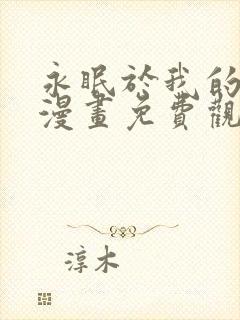 永眠於我的
漫畫免費觀
淳木